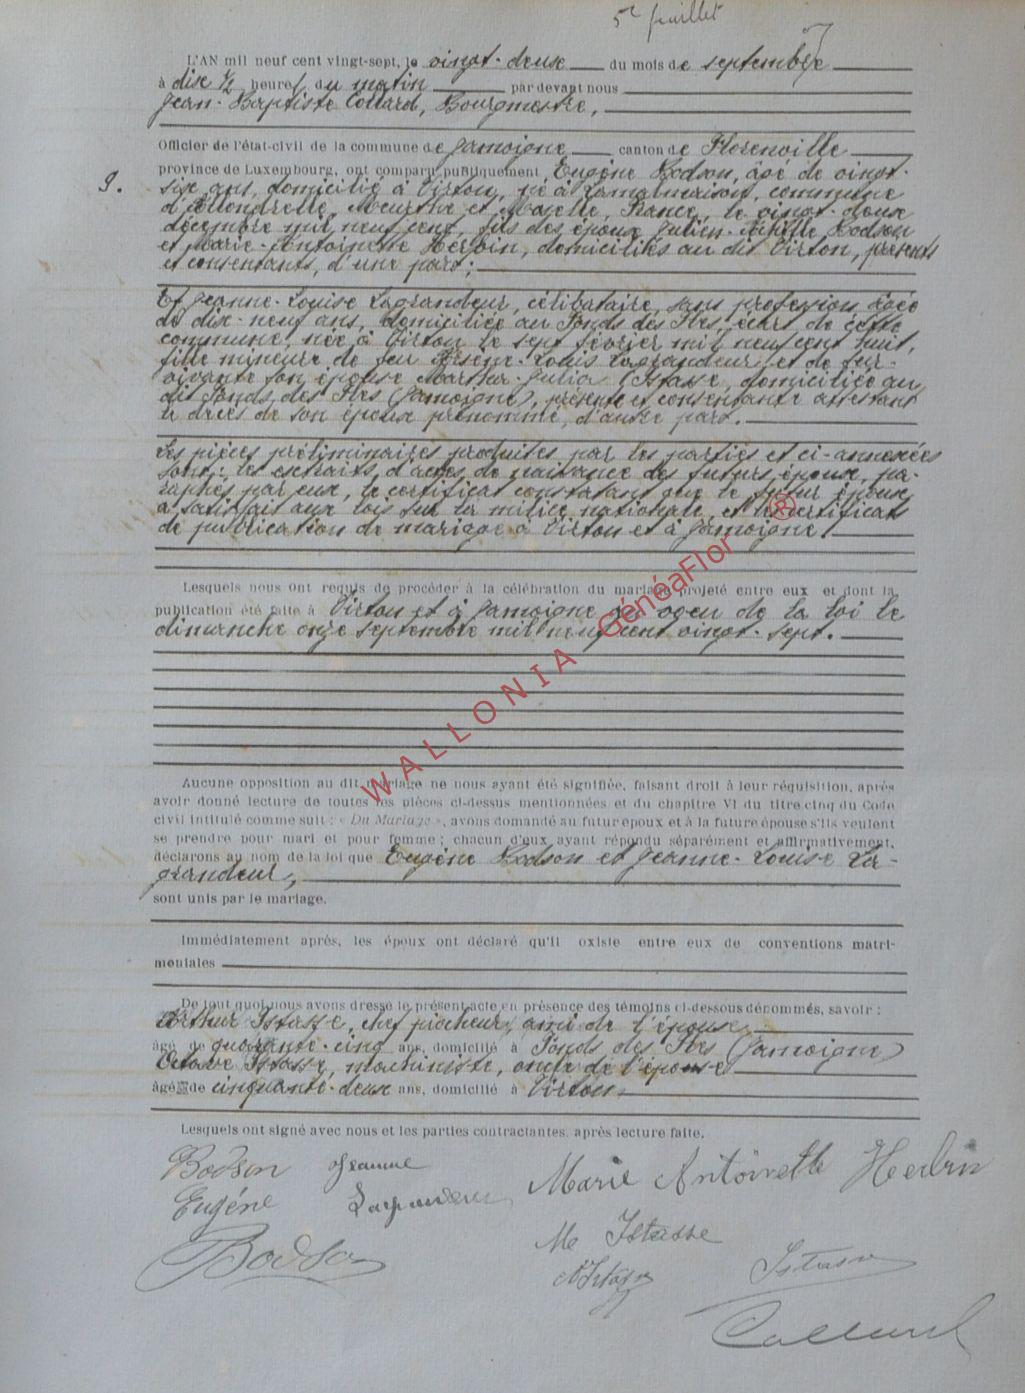 5e feuillet
L'AN mil neuf cent vingt-sept, le vingt-deux du mois de septembre
à dix ½ heures du matin par devant nous
Jean-Baptiste Collard, Bourgmestre,
Officier de l'état-civil de la commune de Jamoigne canton de Florenville
province de Luxembourg, ont comparu publiquement Eugène Bodson, âgé de vingt-
9. six ans, domicilié à Virton, né à Lamalmaison, commune
d'Allondrelle, Meurthe et Moselle, France, le vingt-deux
décembre mil neuf cent, fils des époux Julien-Achille Bodson
et Marie-Antoinette Herbin, domiciliés au dit Virton, présents
et consentants, d'une part;
Et Jeanne-Louise Lagrandeur, célibataire, sans profession, âgée
de dix-neuf ans, domiciliée au Fonds des Iles, écart de cette
commune, née à Virton le sept février mil neuf cent huit,
fille mineure de feu Arsène-Louis Lagrandeur et de sur-
vivante son épouse Martha-Julia Istasse, domiciliée au
dit Fonds des Iles (Jamoigne), présente et consentante attestant
le décès de son époux prénommé, d'autre part.
Les pièces préliminaires produites par les parties et ci-annexées
sont: les extraits d'actes de naissance des futurs époux, pa-
raphés par eux, le certificat constatant que le futur époux
a satisfait aux lois sur la milice nationale, et les certificats
de publication de mariage à Virton et à Jamoigne.
Lesquels nous ont requis de procéder à la célébration du mariage projeté entre eux et dont la
publication été faite à Virton et à Jamoigne au voeu de la loi le
dimanche onze septembre mil neuf cent vingt-sept.
WALLONIA GénéaFlor ®
Aucune opposition au dit mariage ne nous ayant été signifiée, faisant droit à leur réquisition, après
avoir donné lecture de toutes les pièces ci-dessus mentionnées et du chapitre VI du titre cinq du Code
civil intitulé comme suit : « Du Mariage », avons demandé au futur époux et à la future épouse s'ils veulent
se prendre pour mari et pour femme ; chacun d'eux ayant répondu séparément et affirmativement,
déclarons au nom de la loi que Eugène Bodson et Jeanne-Louise La-
grandeur,
sont unis par le mariage.
Immédiatement après, les époux ont déclaré qu'il existe entre eux de conventions matri-
moniales
De tout quoi nous avons dressé le présent acte en présence des témoins ci-dessous dénommés, savoir :
Arthur Istasse, chef piocheur, ami de l'épouse,
âgé de quarante-cinq ans, domicilié à Fonds des Iles (Jamoigne)
Octave Istasse, machiniste, oncle de l'épouse
âgé de cinquante-deux ans, domicilié à Virton
Lesquels ont signé avec nous et les parties contractantes, après lecture faite.
Bodson Jeanne Marie Antoinette Herbin
Eugène Lagrandeur
Bodson Me Istasse
A Istasse Istasse
Collard